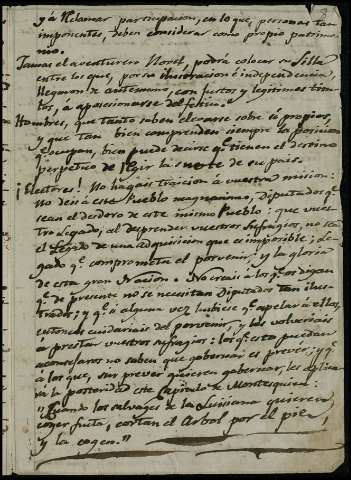 y á reclamar participacion, en lo que, personas tan
imponentes, deben considerar como propio patrimo-
nio.
Jamas el aventurero Novel, podrá colocar su Silla
entre los que, por su ilustracion é independencia,
llegaron de antemano, con justos y legitimos titu-
los, á aposicionarse del
Hombres, que tanto saben elevarse sobre si propios,
y que tan bien comprenden siempre la posicion
q.e ocupan, bien puede decirse q.e tienen el destino
perpetuo de regir la suerte de su pais.
¡Electores! No hagais traicion á vuestra mision:
No deis á este Pueblo magnanimo, Diputados q.e
sean el desdoro de este mismo Pueblo: que vues-
tro Legado, al desprender vuestros sufragios, no sea
el Legado de una adquisicion que es imposible; Le-
gado q.e comprometa el porvenir, y la gloria
de esta gran Nacion. No creais á los q.e os digan
q.e de presente no se necesitan Diputados tan ilus-
trados; y q.e si alguna vez hubiese q.e apelar á ellos,
entonces cuidariais del porvenir, y les volveriais
á prestar vuestros sufragios: los q.e esto puedan
aconsejaros no saben que gobernar es prever, y q.e
á los que, sin prever quieren gobernar, les aplica-
rá la posteridad este Capitulo de Montesquieu:
"Cuando los salvages de la Luisiana quieren
coger fruta, cortan el Arbol por el pie,
y la cogen."